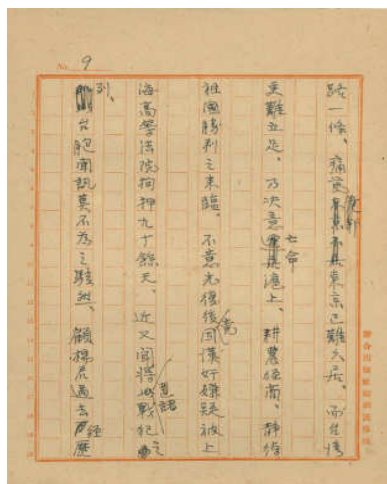 No. 9
路一條、痛 東京已難久居、而
更難立足。乃決意亡命滬上、耕農經商、靜候
祖國勝利之來臨。不意光復後竟因漢奸嫌疑被上
海高等法院拘押九十餘天、近又聞將 戰犯之
列、台胞聞訊莫不為之駭然、顧棉 過去經歷